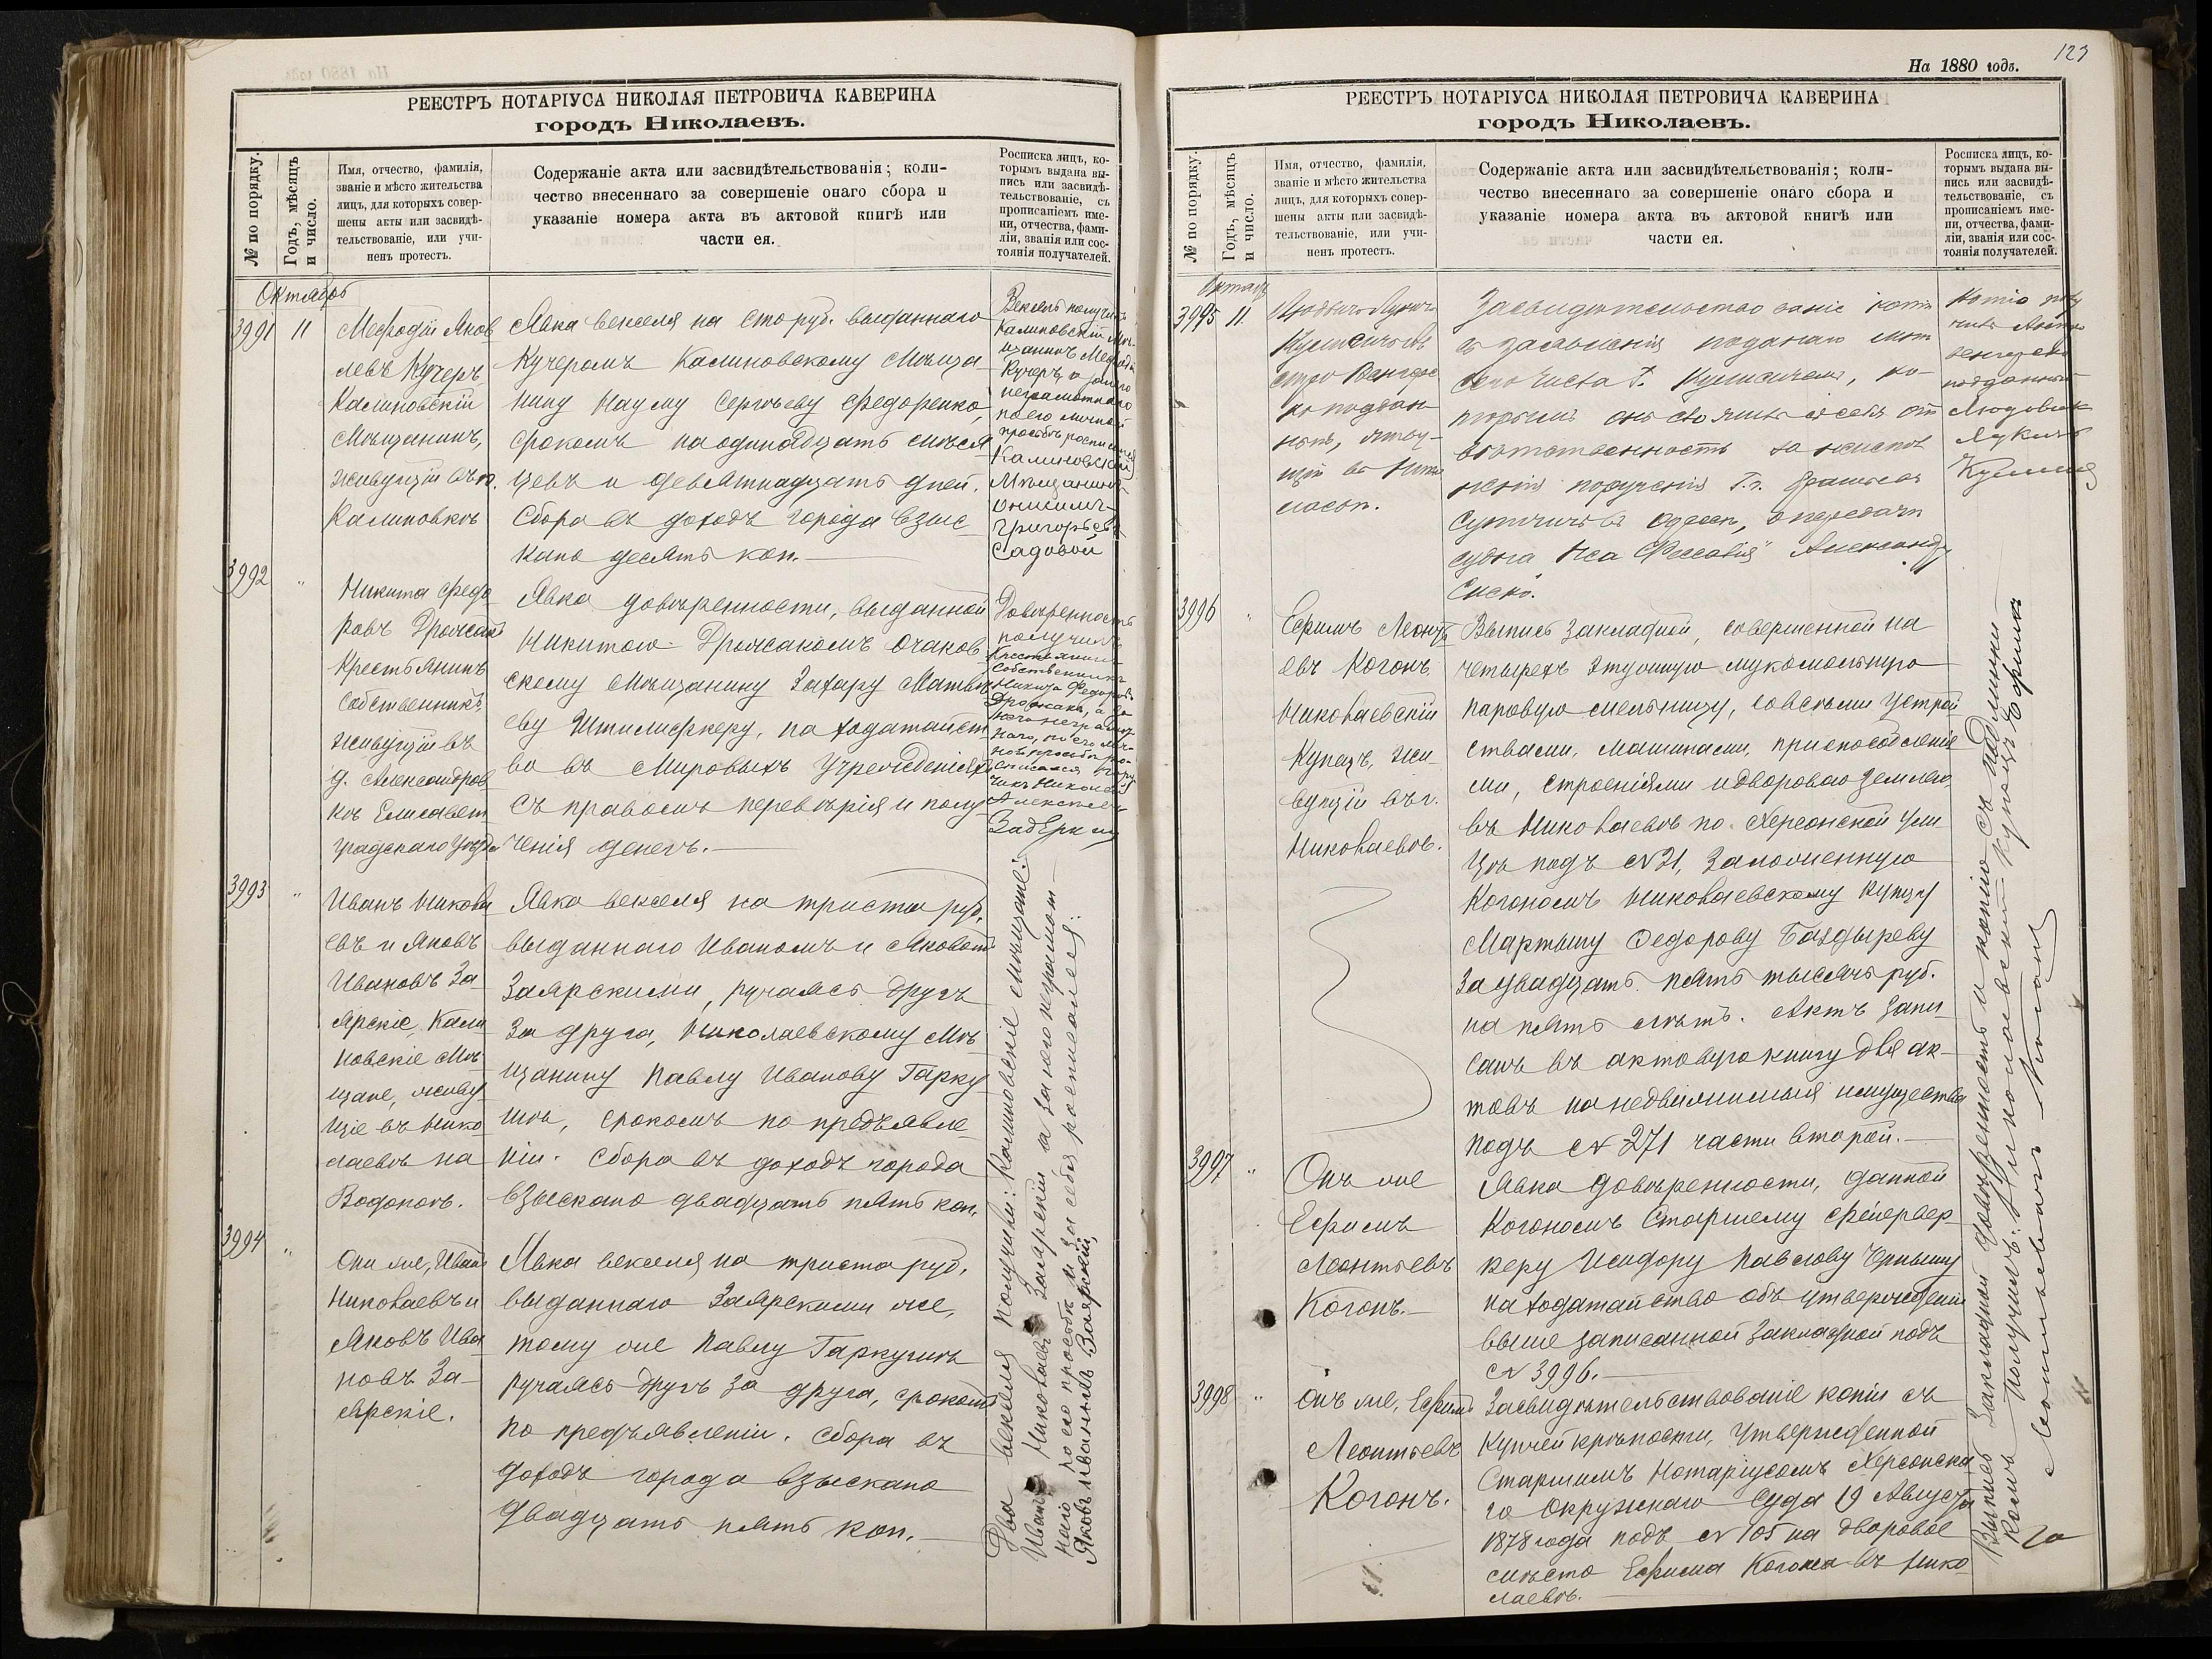 РЕЕСТРЪ НОТАРІУСА НИКОЛАЯ ПЕТРОВИЧА КАВЕРИНА
городъ Николаевъ.
№ по порядку.
Годъ, мѣсяцъ
и число.
Имя, отчество, фамилія,
званіе и мѣсто жительства
лицъ, для которыхъ совер-
шены акты или засвидѣ-
тельствованіе, или учи-
ненъ протестъ.
Содержаніе акта или засвидѣтельствованія; коли-
чество внесеннаго за совершеніе онаго сбора и
указаніе номера акта въ актовой книгѣ или
части ея.
Росписка лицъ, ко-
торымъ выдана вы-
пись или засвидѣ-
тельствованіе, съ
прописаніемъ име-
ни, отчества, фами-
ліи, званія или сос-
тоянія получателей.
Октябрь
3991
11
Мефодій Яков
левъ Кучеръ
Калиновскій
Мѣщанинъ,
живущій въ п.
Калиновкѣ
Явка векселя на сто руб. выданнаго
Кучеромъ Калиновскому Мѣща
нину Науму Сергѣеву Федоренко,
срокомъ на одинадцать мѣся
цевъ и девятнадцать дней.
Сбора въ доходъ города взыс
кано десять коп.
Вексель получилъ
Калиновскій Мѣ-
щанинъ Мефодій
Кучеръ, а за него
неграмотнаго
по его личной
просьбѣ росписался
Калиновскій
Мѣщанинъ
Онисимъ
Григорьевъ
Садовой
3992
"
Никита Федо
ровъ Дрожакъ
Крестьянинъ
Собственникъ,
живущій въ
д. Александров
кѣ Елисавет
градскаго Уѣзда
Явка довѣренности, выданной
Никитою Дрожакомъ Очаков
скому Мѣщанину Захару Матвѣ
еву Штилифкеру, на ходатайст
во въ Мировыхъ Учрежденіяхъ
съ правомъ перевѣрія и полу
ченія денегъ.
Довѣренность
получилъ
Крестьянинъ
Собственникъ
Никита Федоровъ
Дрожакъ, а за
него неграмот
наго, по его лич-
ной просьбѣ ро-
списался
Николай
Алексѣевъ
3993
"
Иванъ Никола
евъ и Яковъ
Ивановъ За
ярскіе, Кали
новскіе Мѣ
щане, живу
щіе въ Нико
лаевѣ на
Водопоѣ.
Явка векселя на триста руб,
выданнаго Иваномъ и Яковомъ
Заярскими, ручаясь другъ
за друга, Николаевскому Мѣ
щанину Павлу Иванову Гарку
шѣ, срокомъ по предъявле
ніи. Сбора въ доходъ города
взыскано двадцать пять коп.
3994
"
Они же, Иванъ
Николаевъ и
Яковъ Ива
новъ За-
ярскіе.
Явка векселя на триста руб,
выданнаго Заярскими же,
тому же Павлу Гаркушѣ
ручаясь другъ за друга, срокомъ
по предъявленіи. Сбора въ
доходъ города взыскано
двадцать пять коп.
Два векселя получили: Калиновскіе мѣщане:
Иванъ Николаевъ Заярскій а за него неграмот-
наго по его просьбѣ и за себя росписался:
Яковъ Ивановъ Заярскій
На 1880 годъ.
123
РЕЕСТРЪ НОТАРІУСА НИКОЛАЯ ПЕТРОВИЧА КАВЕРИНА
городъ Николаевъ.
№ по порядку.
Годъ, мѣсяцъ
и число.
Имя, отчество, фамилія,
званіе и мѣсто жительства
лицъ, для которыхъ совер-
шены акты или засвидѣ-
тельствованіе, или учи-
ненъ протестъ.
Содержаніе акта или засвидѣтельствованія; коли-
чество внесеннаго за совершеніе онаго сбора и
указаніе номера акта въ актовой книгѣ или
части ея.
Росписка лицъ, ко-
торымъ выдана вы-
пись или засвидѣ-
тельствованіе, съ
прописаніемъ име-
ни, отчества, фами-
ліи, званія или сос-
тоянія получателей.
Октябр
3995
11.
поддан
въ Нико
лаевѣ.
Засвидѣтельствованіе копіи
съ заявленія поданаго мнѣ
которымъ онъ
отвѣтственность за
порученія Г.г.
Одессѣ, о передачи
судна
Копію полу
чилъ
подданный
Людовикъ
3996
"
Ефимъ Леонть
евъ Когонъ
Николаевскій
Купецъ, жи-
вущій въ г.
Николаевѣ.
Выпись закладной, совершенной на
четырехъ этажную мукомольную
паровую мельницу, со всѣми устрой
ствами, машинами, приспособленія
ми, строеніями и дворовою землею,
въ Николаевѣ по Херсонской ули
цѣ подъ № 21, заложенную
Когономъ Николаевскому Купцу
Мартыну Федорову Баздыреву
за двадцать пять тысячъ руб.
на пять лѣтъ. Актъ запи
санъ въ актовую книгу для ак-
товъ на недвижимыя имущества
подъ № 271 части второй.
3997
"
Онъ же
Ефимъ
Леонтьевъ
Когонъ.
Явка довѣренности, данной
Когономъ Старшему Фейервер-
керу Исидору Павлову Чернышу
на ходатайство объ утвержденіи
выше записанной закладной подъ
№ 3996.
3998
"
Онъ же, Ефимъ
Леонтьевъ
Когонъ.
Засвидѣтельствованіе копіи съ
Купчей крѣпости, утвержденной
Старшимъ Нотаріусомъ Херсонска
го Окружнаго Суда 19 Августа
1878 года подъ № 105 на дворовое
мѣсто Ефима Когона въ Нико
лаевѣ.
Выпись закладной довѣренность и копію съ подлинни-
комъ получилъ: Николаевскій купецъ Ефимъ
Леонтьевъ Когонъ